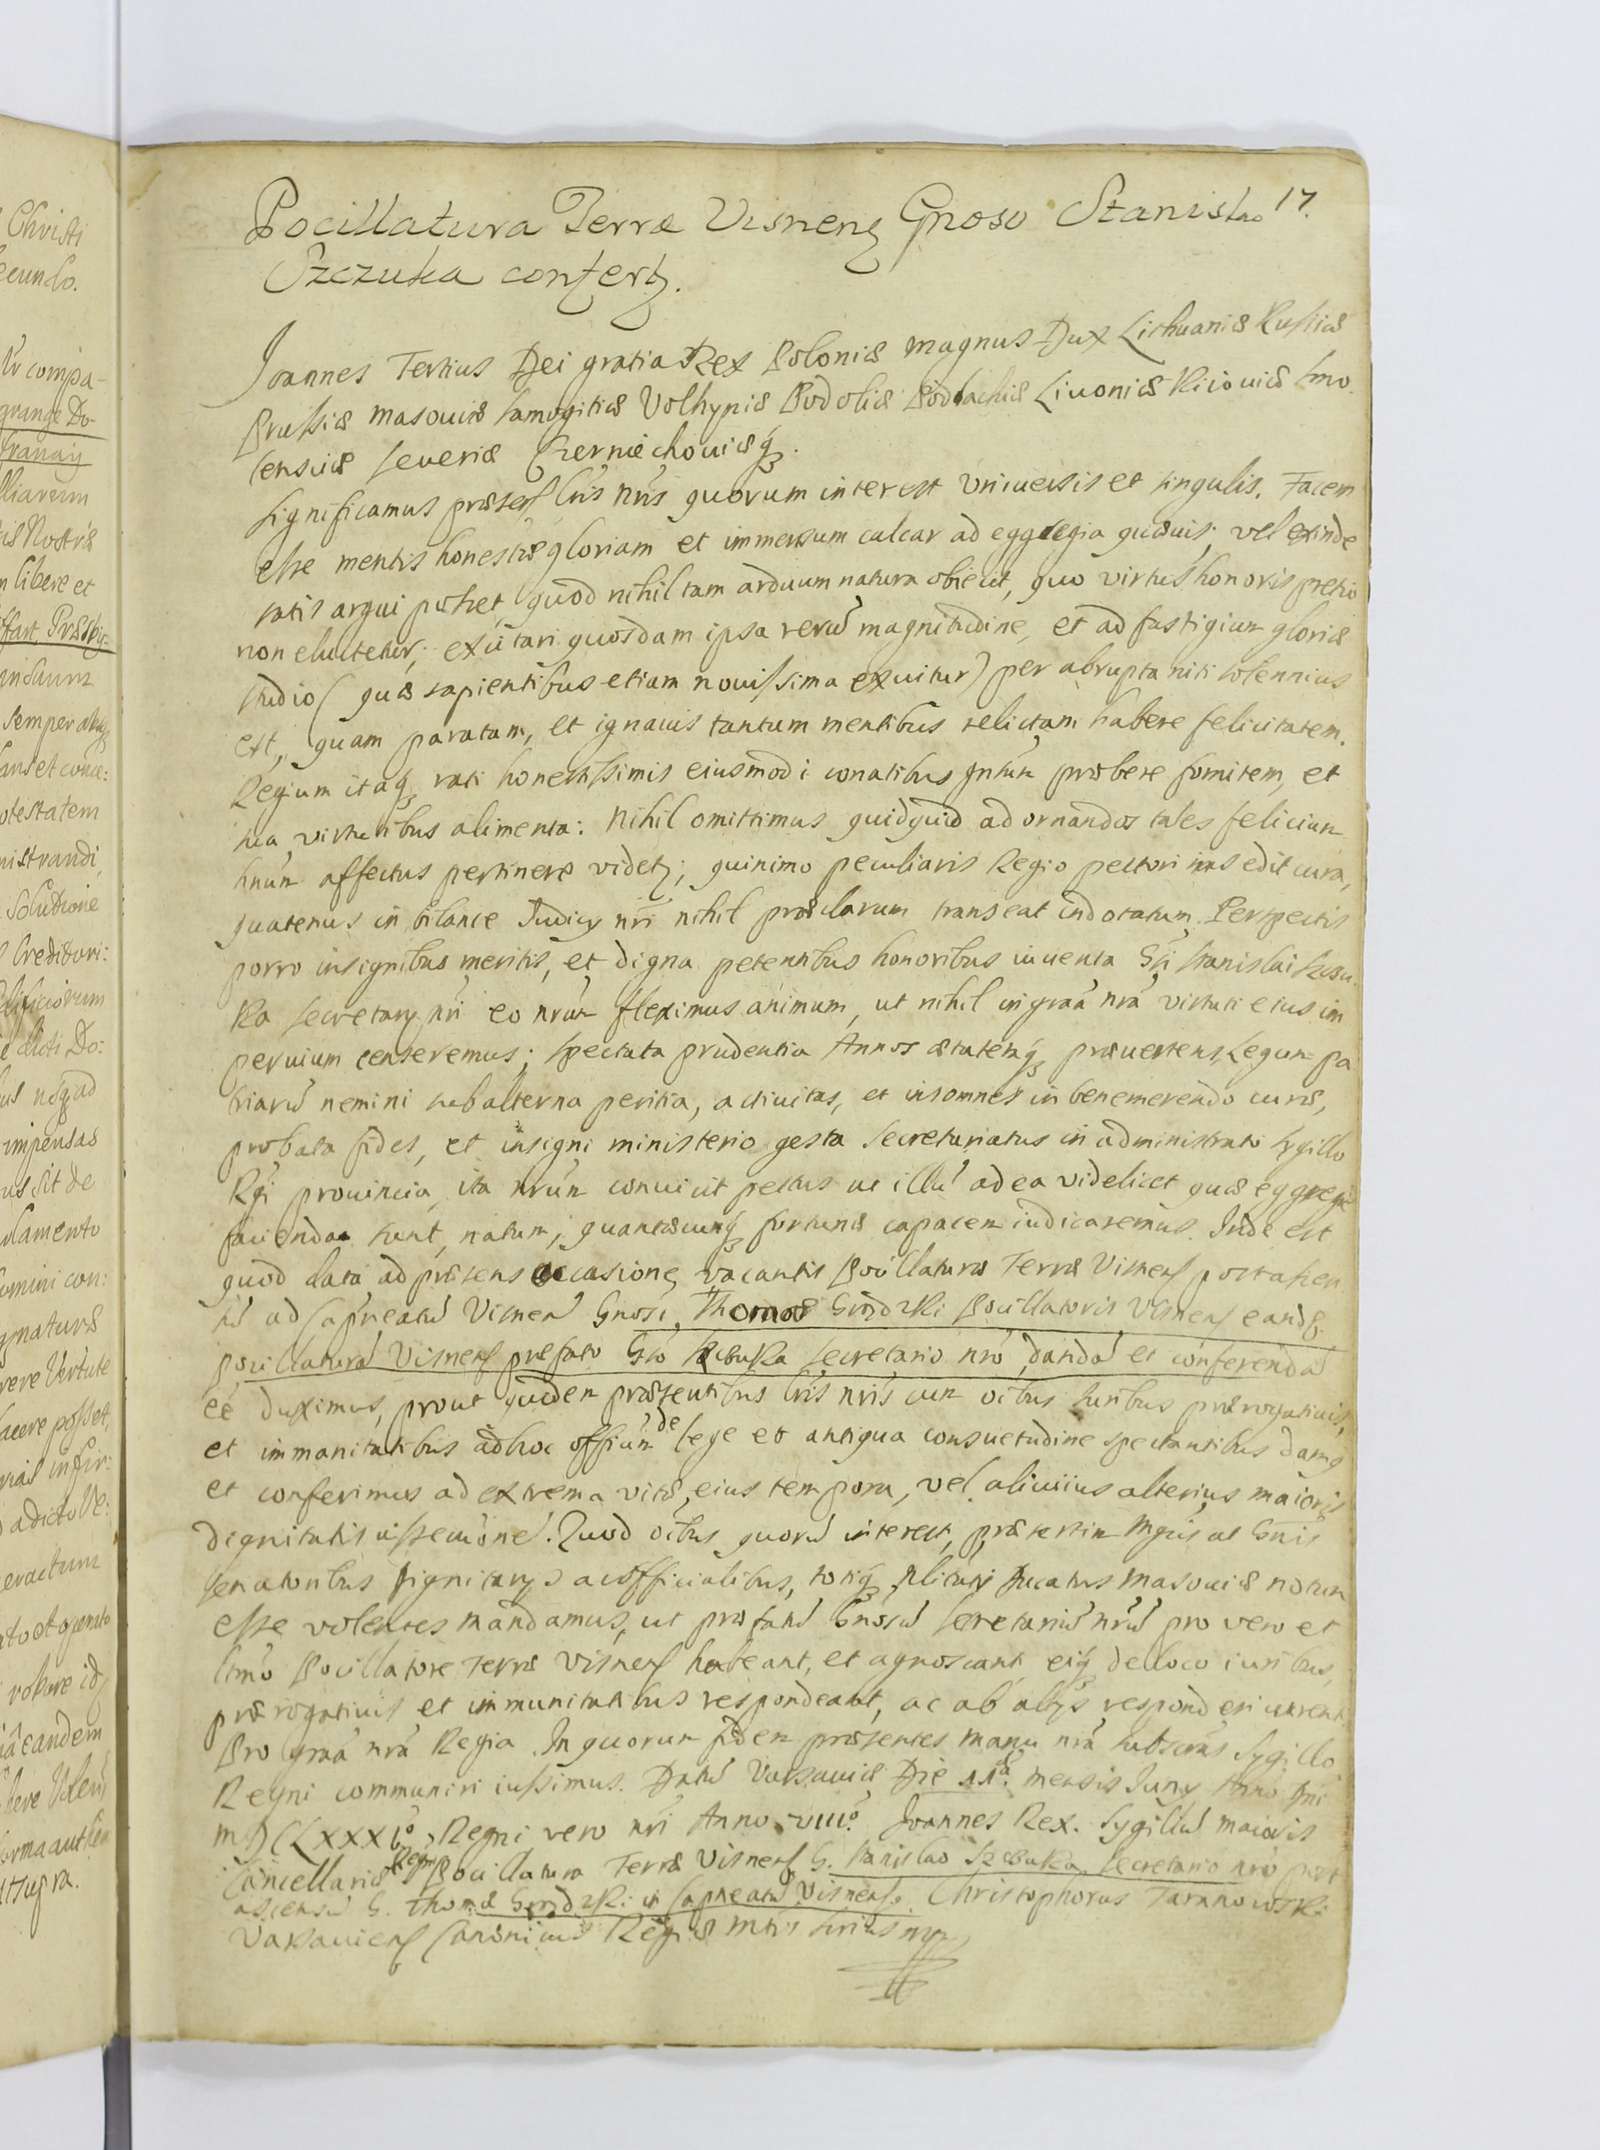 17.
Pocillatura Terræ Visnenꝫ Gnoso Stanislao
Szczuka confertꝫ.
Joannes Tertius Dei gratia Rex Poloniæ Magnus Dux Lithuaniæ Russiæ
Prussiæ Masouiæ Samogitiæ Volhyniæ Podoliæ Podlachiæ Liuoniæ Kiiouiæ Smo
lensciæ Seueriæ Czerniechouiæq́ꝫ.
Significamus præsen̄ Lr̄is nr̄is quorum interest vniuersis et singulis. Facem
esse mentis honestæ gloriam et immensum calcar ad eggregia quæuis; vel exinde
satis argui potest, quod nihil tam arduum natura obiecit, quo virtus honoris pretio
non eluctetur; excitari quosdam ipsa rerū magnitudine, et ad fastigium gloriæ
studio (quæ sapientibus etiam nouissima exuitur) per abrupta niti solennius
est, quam paratam, et ignauis tantum mentibus relictam habere felicitatem.
Regium itaq́ꝫ rati honestissimis eiusmodi conatibus præbere fomitem, et
sua virtutibus alimenta: Nihil omittimus quidquid ad ornandos tales felicium
affectus pertinere videtꝫ; quinimo peculiaris Regio pectori insedit cura,
quatenus in bilance Judicy nr̄i nihil præclarum transeat indotatum. Perspectis
porro insignibus meritis, et digna petentibus honoribus iuuenta Gsi Stanislai Szczu
ka Secretary nr̄i eo nr̄um fleximus animum, ut nihil in graā nr̄ā virtuti eius im
peruium censeremus; Spectata prudentia Annos ætatemq́ꝫ præuertens, Legum pa
triarū nemini subalterna peritia, actiuitas, et insomnes in benemerendo curæ,
probata fides, et insigni ministerio gesta Secretariatus in administrato Sygillo
Rḡi prouincia, ita nr̄um conuicit pectus ut illū ad ea videlicet quæ eggregie
facienda sunt, natum, quantæcunq́ꝫ fortunæ capacem iudicaremus. Inde est
quod data ad præsens occasione vacantis Pocillaturæ Terræ Visnens̄ post ascen
sū ad Capneatū Visnen̄ Gnosi Thomæ Grodzki Pocillatoris Visnens̄ eandē
pocillaturā Visnens̄ præfato Gso Szczuka Secretario nr̄o dandā et conferendā
eē duximus, prout quidem præsentibus Lr̄is nr̄is cum oībus iuribus prærogatiuis,
et immanitatibus ad hoc officium de lege et antiqua consuetudine spectantibus damꝰ
et conferimus ad extrema vitæ eius tempora, vel alicuius alterius maioris
dignitatis assecūonē. Quod oībus quorū interest, præsertim Mgcis ac Gn̄is
Senatoribus Dignitarys ac officialibus, totiq́ꝫ Ducatus Masouiæ notum
esse volentes mandamus, ut præfatū Gnosū Secretariū nr̄ū pro vero et
Ltmo Pocillatore Terræ Visnens̄ habeant, et agnoscant, eiq́ꝫ de loco iuribus,
prærogatiuis et immunitatibus respondeant, ac ab alys responderi curent.
Pro graā nr̄ā Regia. In quorum fidem præsentes manu nr̄ā subscrās Sygillo
Regni communiri iussimus. Datū Varsauiæ Die 11ª mensis Juny Anno Dn̄i
MDCLXXXIº, Regni vero nr̄i Anno VIIIº. Joannes Rex. Sygillū maioris
Cancellariæ Regni Pocillatura Terræ Visnens̄ G. Stanislao Szczuka Secretario nr̄o post
ascensū G. Thomæ Grodzki in Capneatū Visnens̄. Christophorus Tarnnowski
Varsauiens̄ Canonicus Regiæ Mtis Srius mp